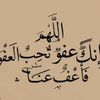 اللهم
إنك عفو تحب العفو
فاعف عنا